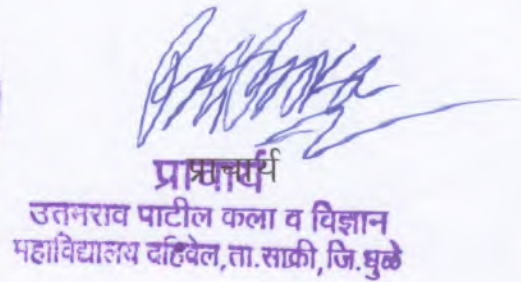 प्राचार्य
प्राचार्य
उतमराव पाटील कला व विज्ञान
महाविद्यालय दहिवेल,ता.साक्री,जि.धुळे